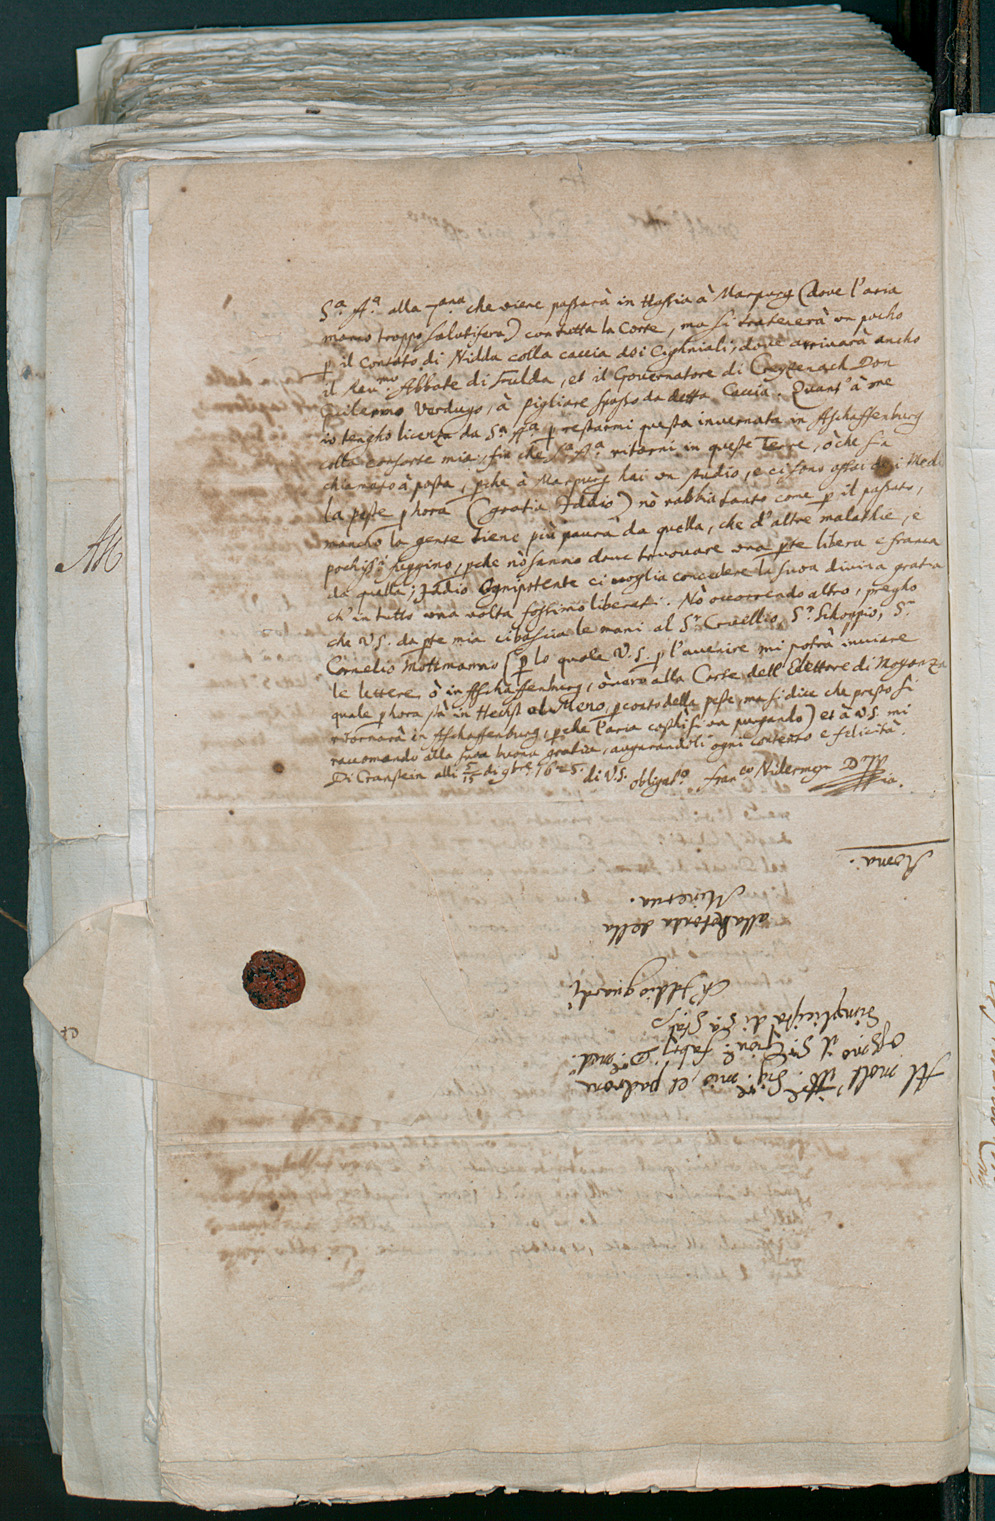 S.a A.a alla 7ana che viene passarà in Hassia à Marpurg (dove l'aria
manco troppo salutifera) con tutta la Corte, ma si tratenerà un pocho
p il Contato di Nidda colla caccia doi Cighniali, dove arrivarà ancho
il Reu.mo Abbate di Fulda, et il Governatore di Creyzenach Don
Guilermo Verdugo, à pigliare spasso da detta Caccia. Quant'à me
io tengho licenza da S.a A.a p restarmi questa invernata in Aschaffenburg
colla consorte mia, fin che S.a A.a ritorni in queste Terre, ò che sia
chiamato à posta, pche à Marpurg hai un studio, e ci sono assai doi Medi
La peste p hora (gratia Iddio) nõ rabbia tanto come p il passato,
mancho la gente tiene più paura da quella, che d'altre malathie, e
pochiss.i fuggino, pche nõ sanno dove trovare una pte libera e franca
da quella; Iddio Ognipotente ci voglia cõcedere la sua divina gratia
ch'in tutto una volta fossimo liberati. Nõ occorrẽdo altro, pregho
che V.S. da pte mia basciа le mani al S.r Cruellio, S.r Schoppio, S.r
Cornelio Mottmanno (p lo quale V.S. p l'avenire mi potrà inviare
le lettere, ò in Aschaffenburg, òvero alla Corte dell'Elettore di Moganza
quale p hora stà in Hechst al Meno, p conto della peste, ma si dice che presto si
ritornarà in Aschaffenburg, pche l'aria costì si va purgando) et à V.S. mi
raccomando alla sua buona gratia, augurandoli ogni cõtento e felicità.
Di Cranstein alli 5/15 di 9bre. 1625. di V.S. obligat.o Fran.co Nidermeyr D.
Al molt' Ill.e Sig.re mio, et padrone
oss.mo il S.r Giov. Fabrj D. med.
Simplicista di S. S.
Ch'Iddio guardi
alla Rotonda della
Minerva.
Roma.